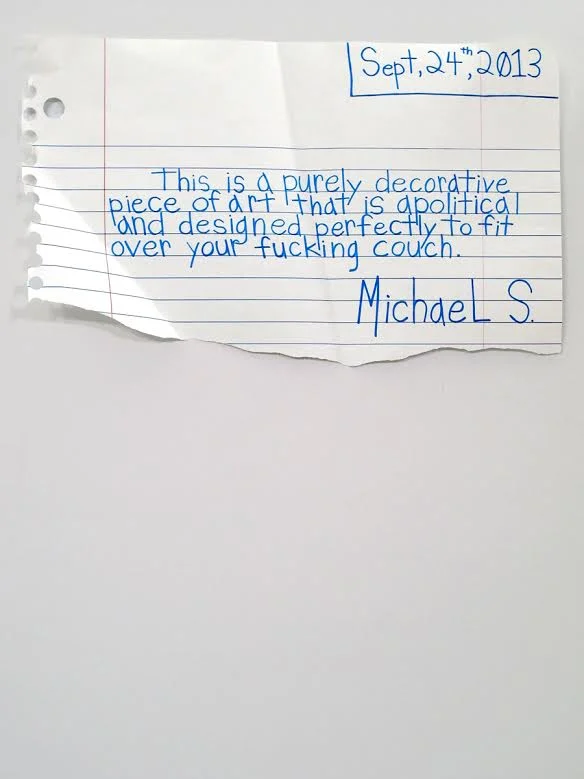 Sept, 24th, 2013
This is a purely decorative
piece of art that is apolitical
and designed perfectly to fit
over your fucking couch.
MichaeL S.